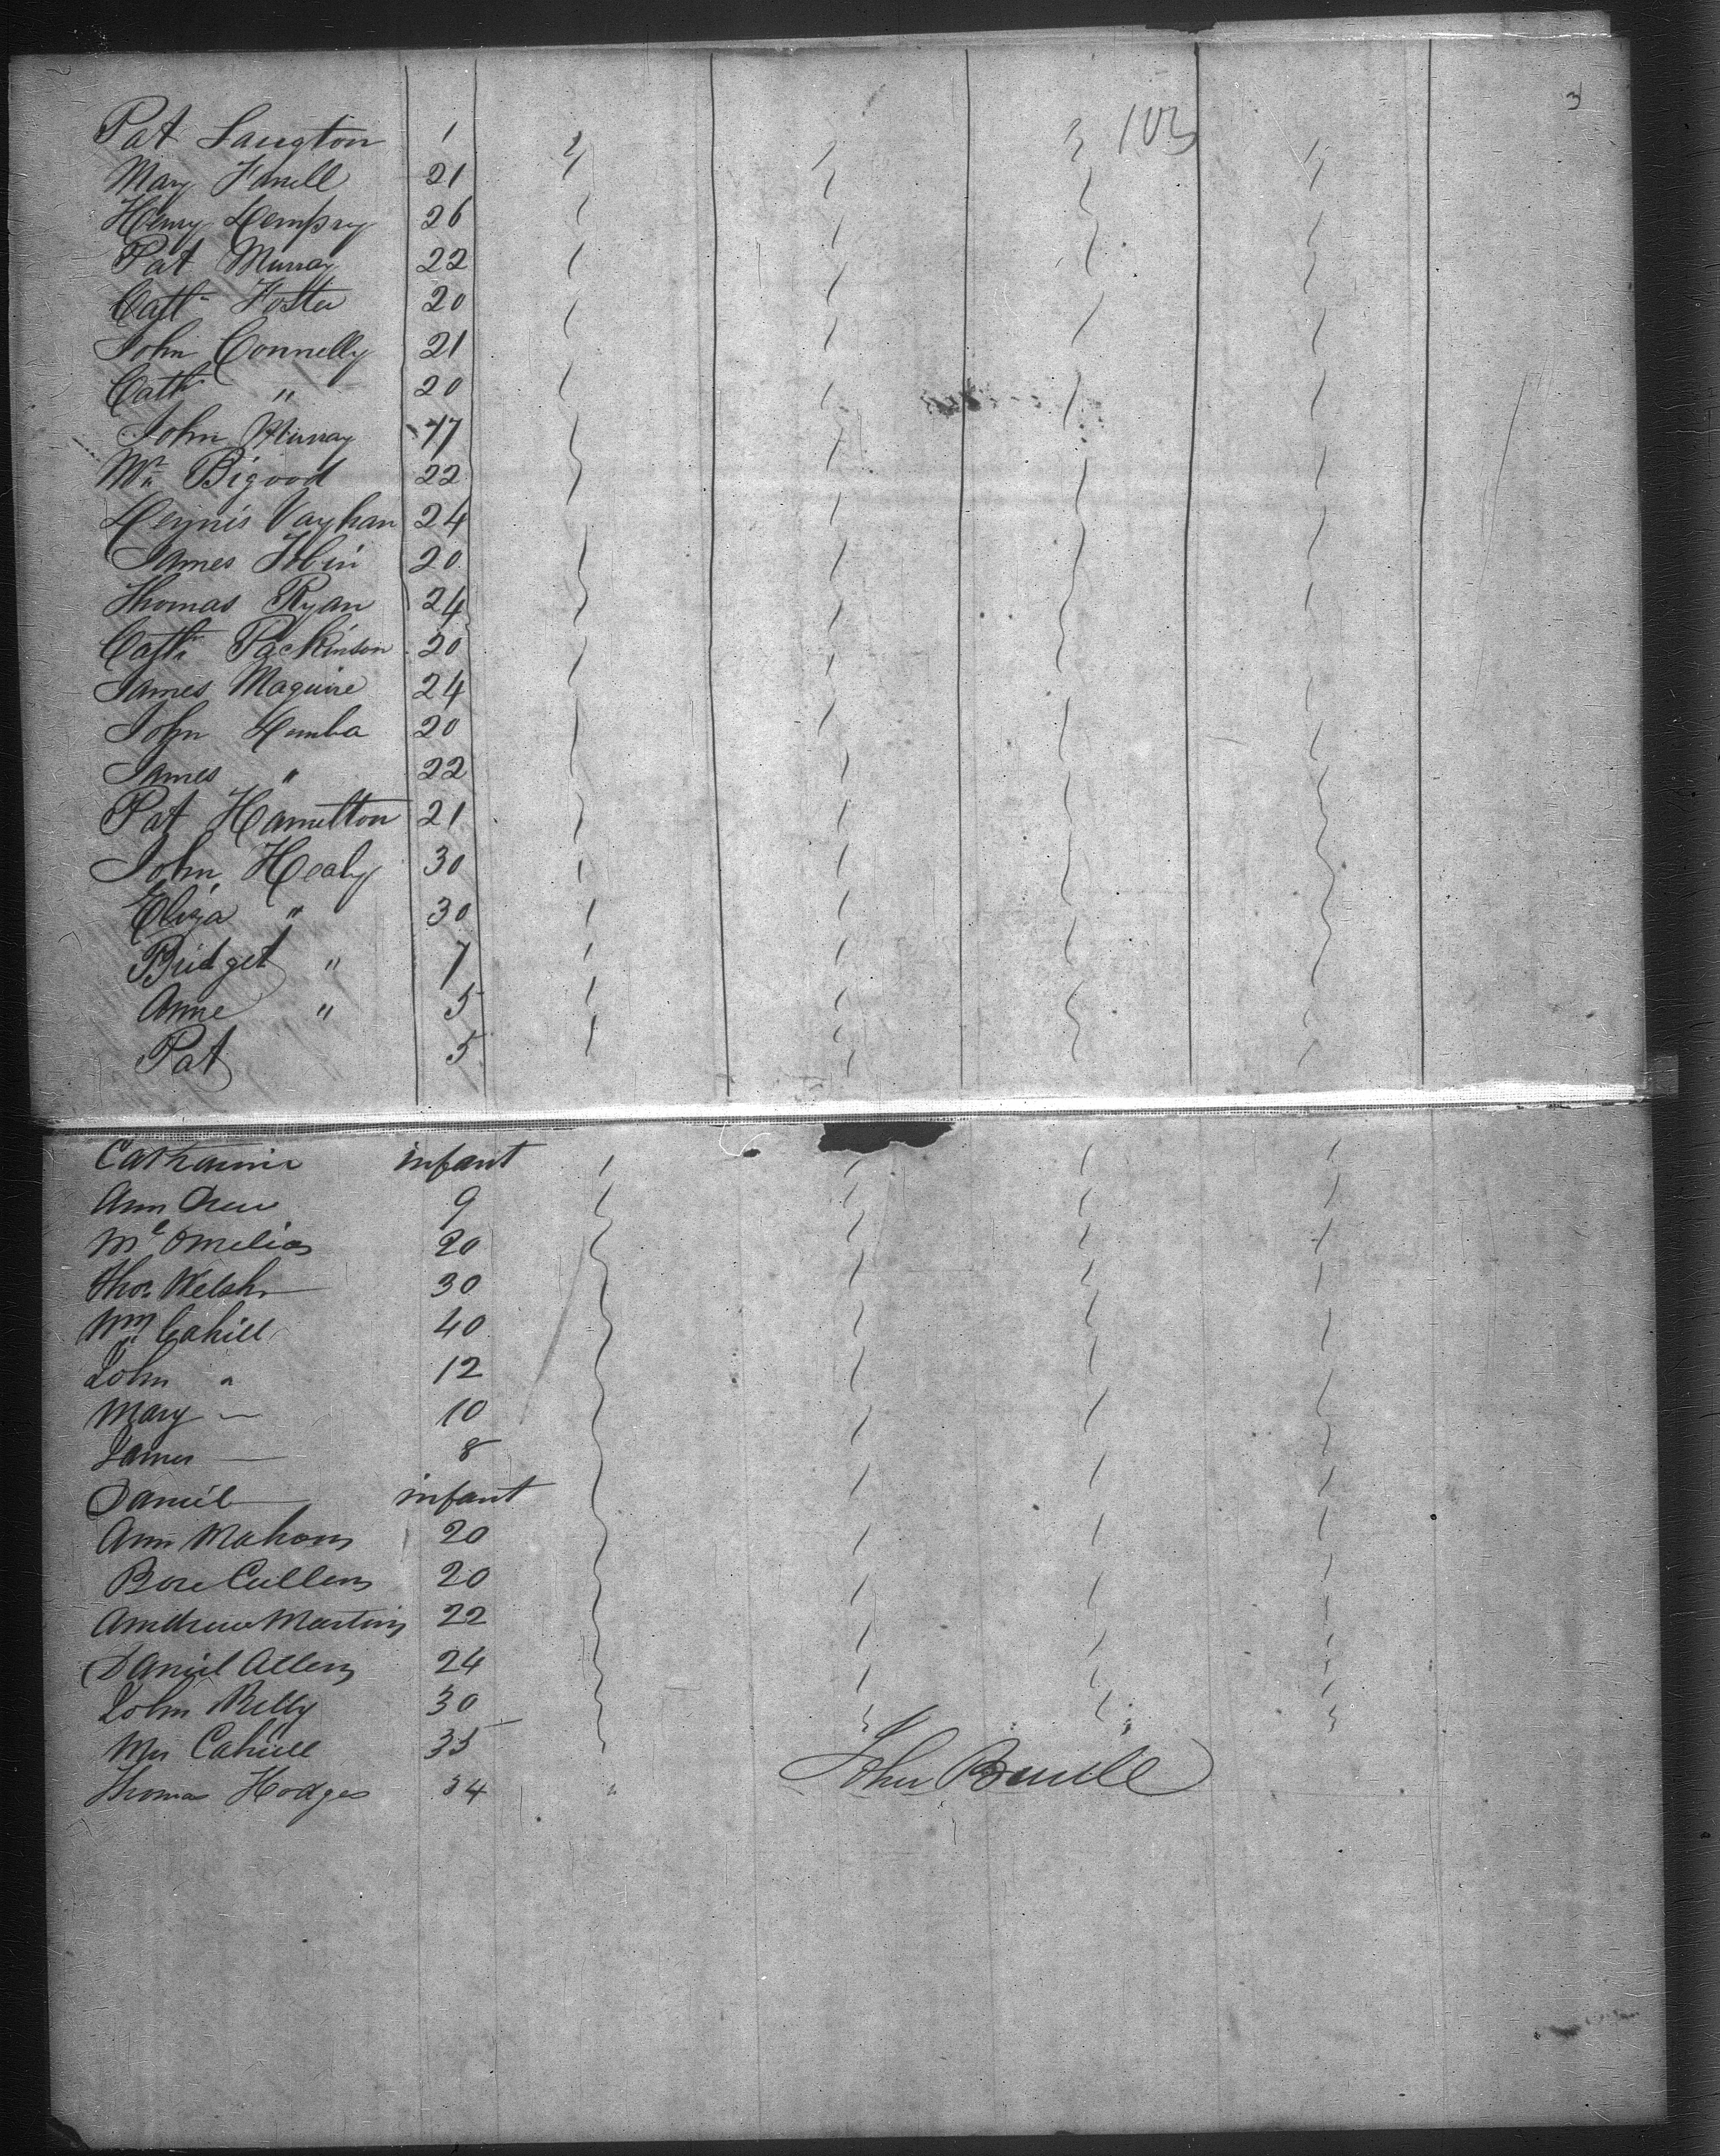 3
103
Pat Langton 1
Mary Farrell 21
Henry Dempsey 26
Pat Murray 22
Cathn Foster 20
John Connelly 21
Cathn " 20
John Murray 47
Wm Bigood 22
Dennis Vaughan 24
James Tobin 20
Thomas Ryan 24
Cathn Packinson 20
James Maguire 24
John Demba 20
James " 22
Pat Hamilton 21
John Healy 30
Eliza " 30
Bridget " 7
Anne " 5
Pat 5
Catharine infant
Ann Drew 9
20
Thos Welsh 30
Wm Cahill 40
John " 12
Mary — 10
James — 8
Daniel — infant
Ann Mahon 20
Cullen 20
Andrew Martin 22
Daniel Allen 24
John 30
Mrs Cahill 35
Thomas Hodges 34
John